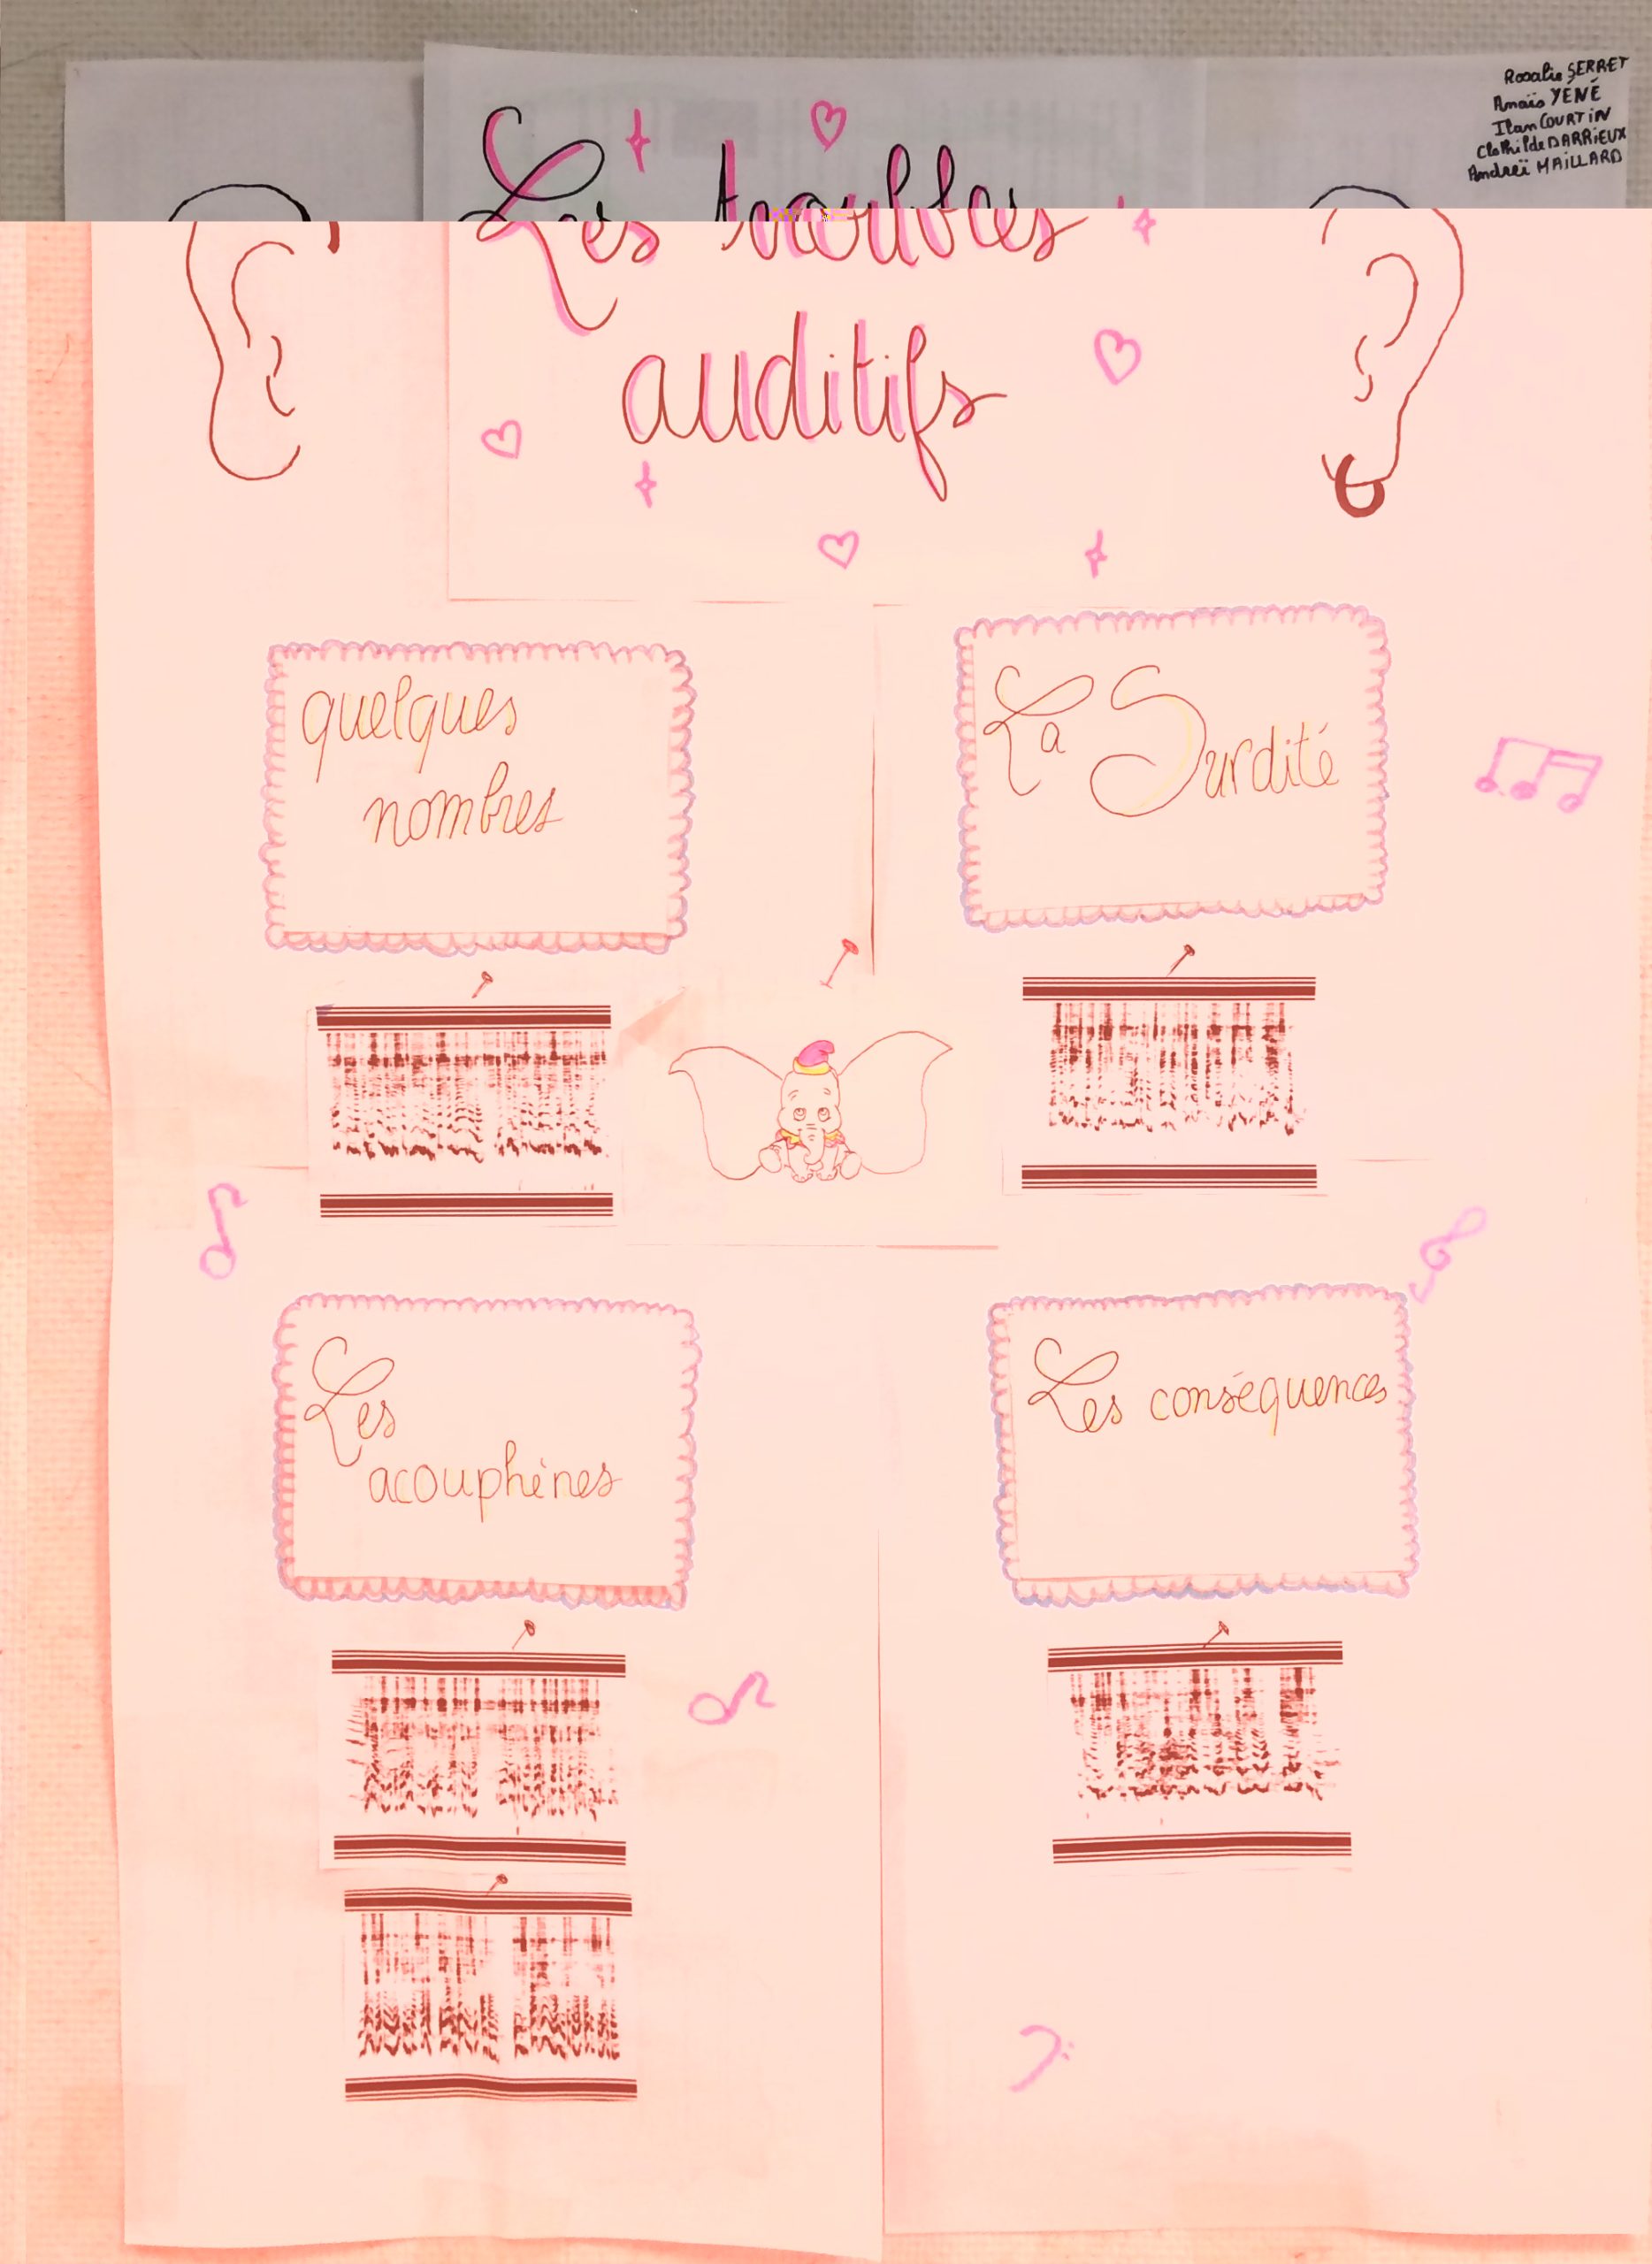 Rosalie SERRET
Anaïs YÉNÉ
Ilan COURTIN
Clothilde DARRIEUX
Andreï MAILLARD
Les troubles
auditifs
quelques
nombres
La Surdité
Les
acouphènes
Les conséquences